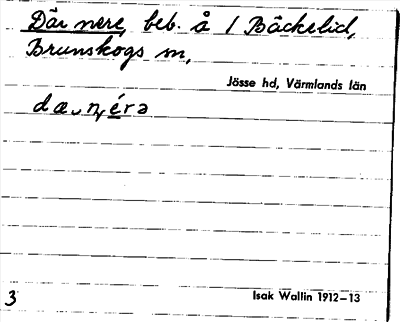 Där nere, beb. å 1 Bäckelid,
Brunskogs sn,
Jösse hd, Värmlands län
dæ n é rə
3
Isak Wallin 1912–13